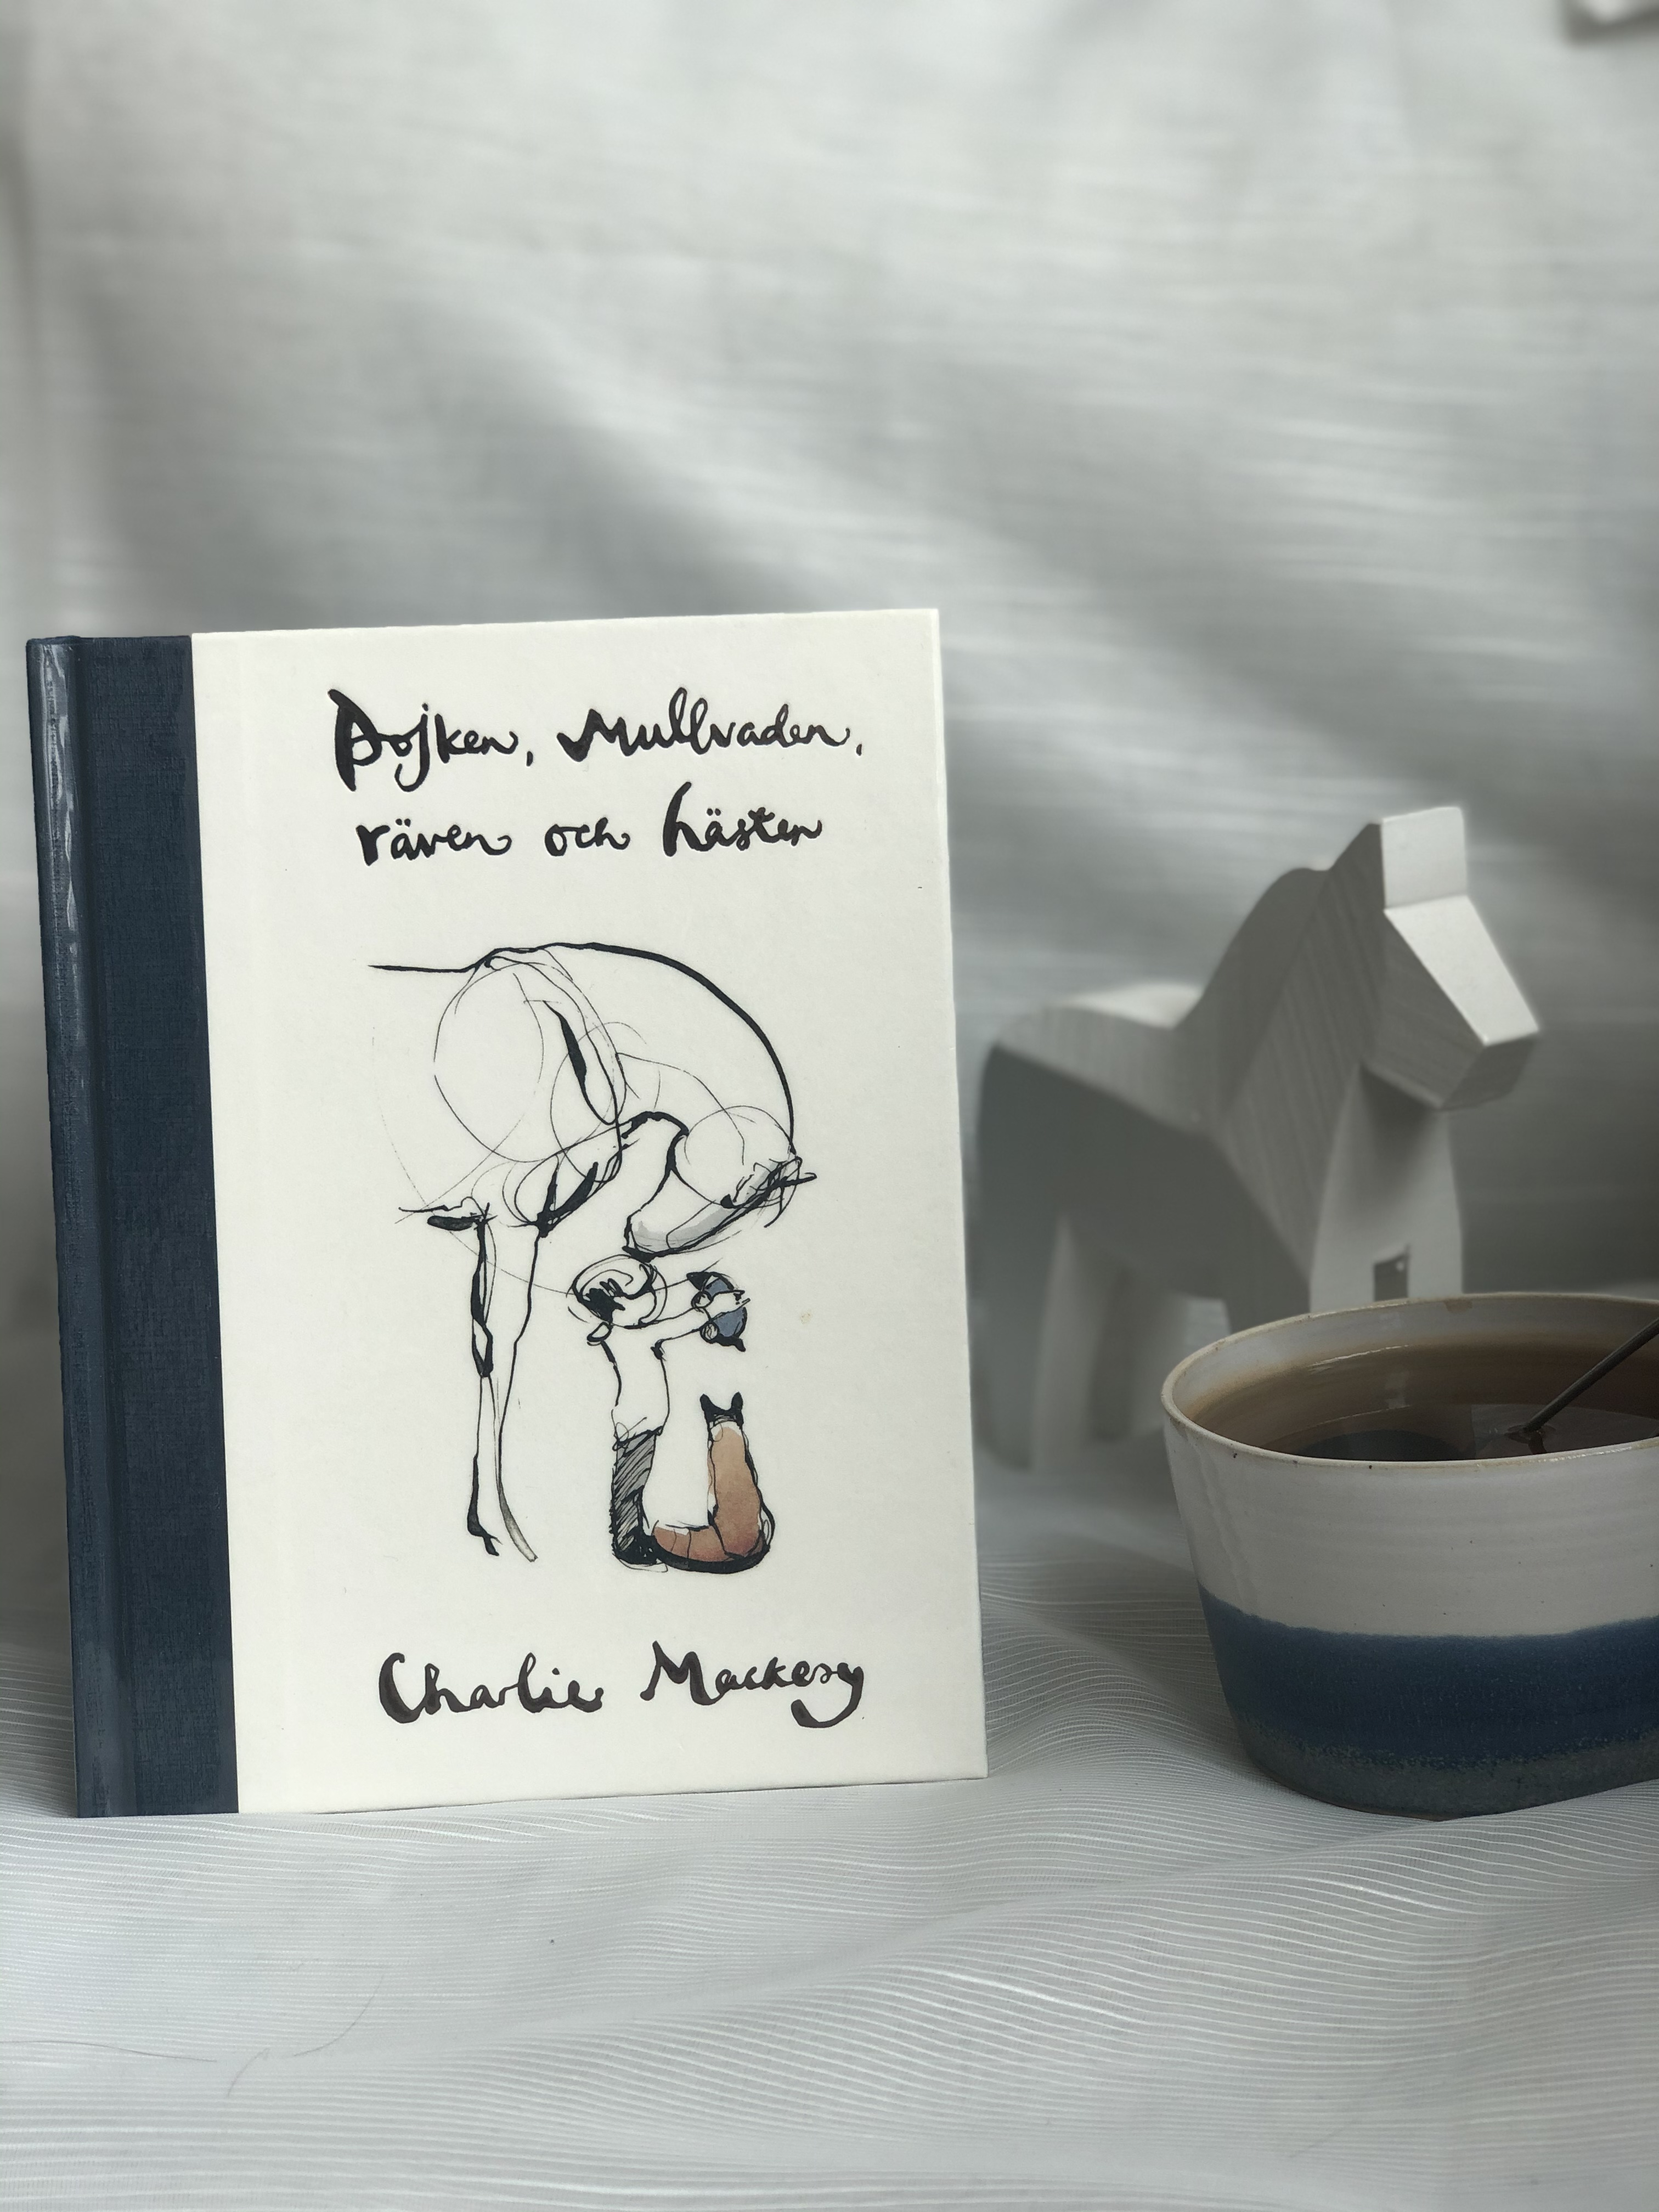 Pojken, Mullvaden,
räven och hästen
Charlie Mackesy